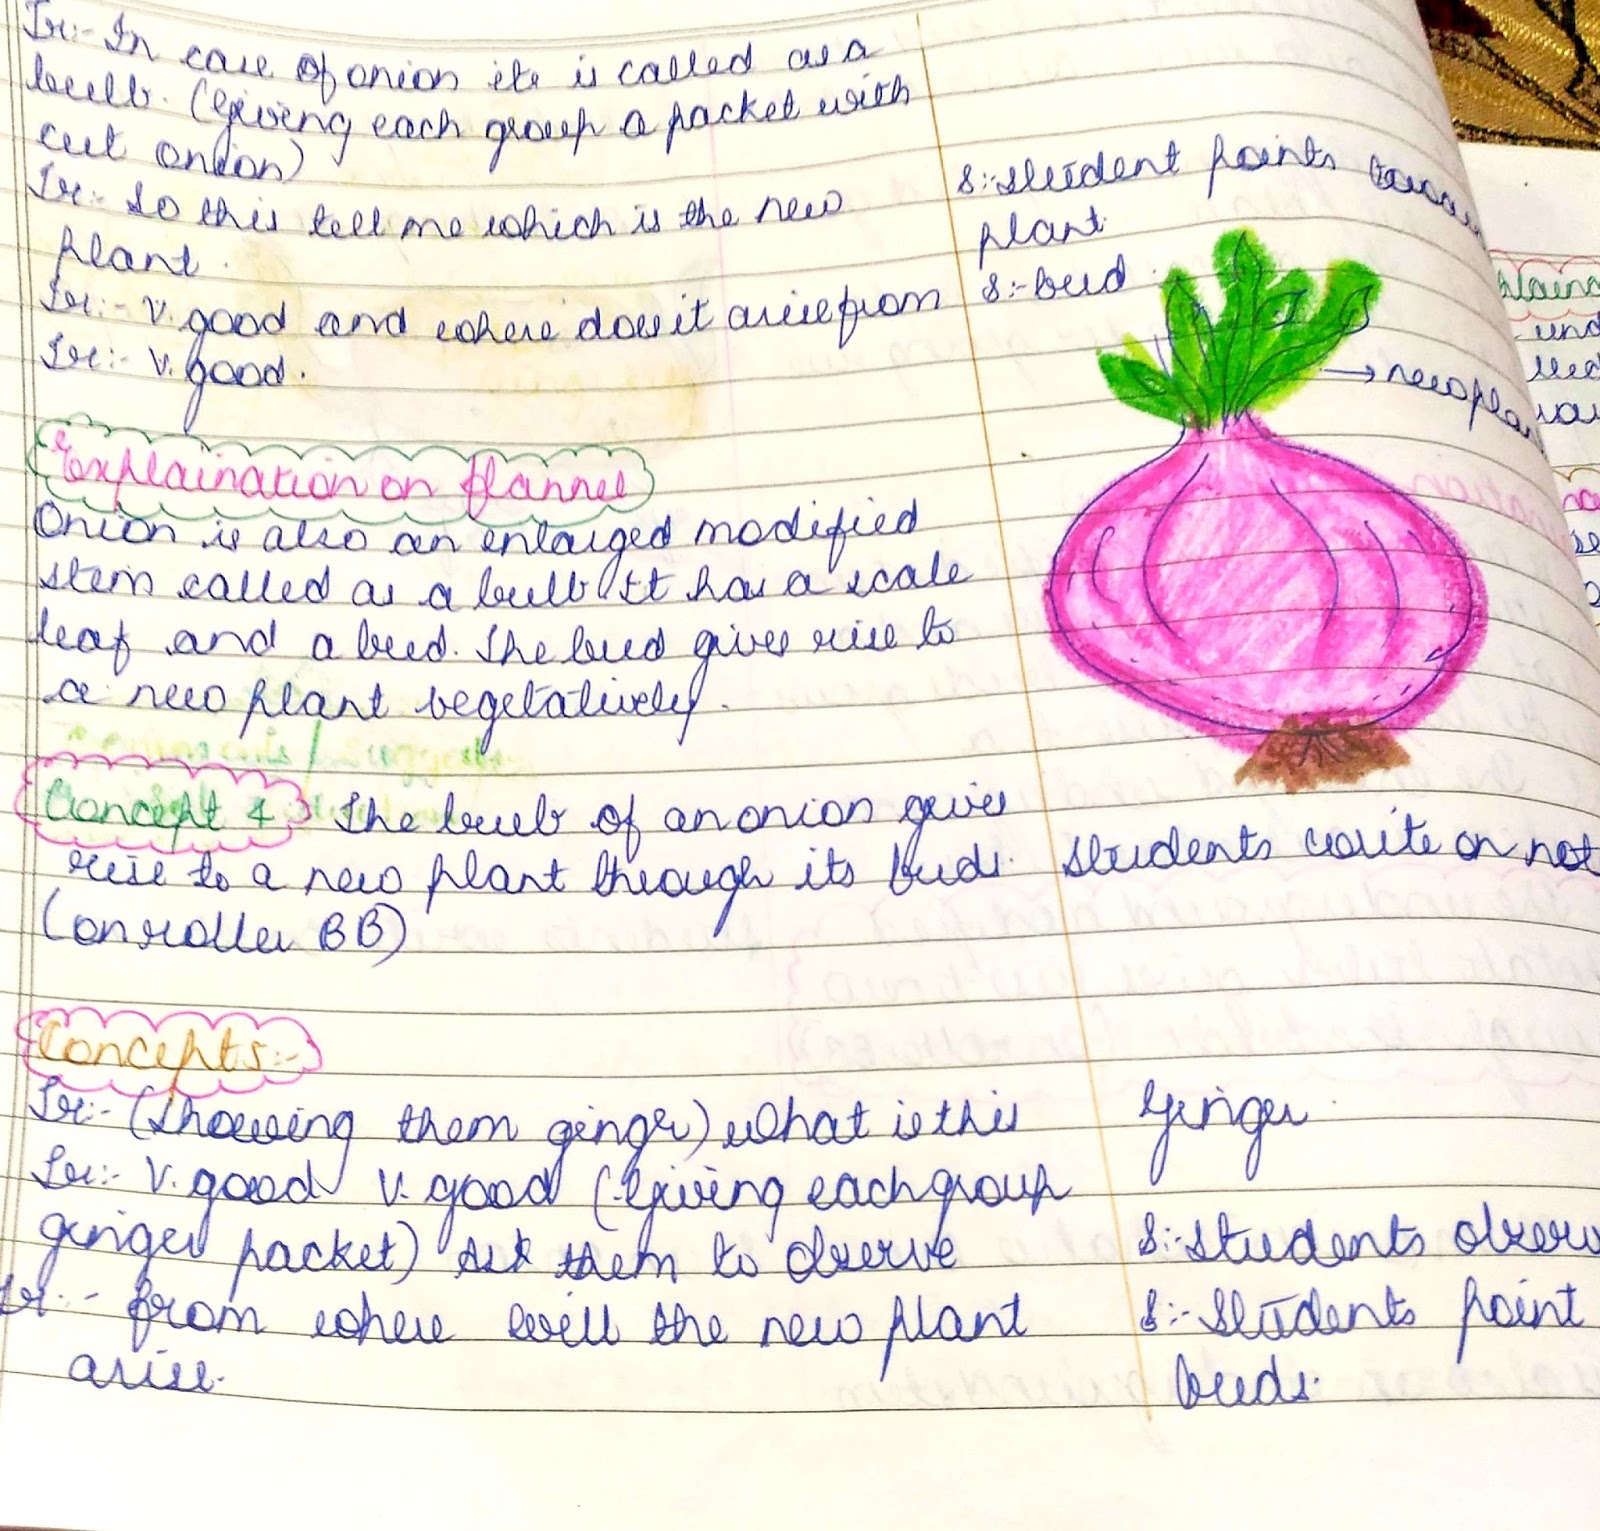 Tr:- In case of onion its is called as a
bulb. (Giving each group a packet with
cut onion)
Tr:- So this tell me which is the new
plant.
S:- student points
plant.
Tr:- V. good and where does it arise from
S:- bud.
Tr:- V. good.
→ new plan
Explaination on flannel
Onion is also an enlarged modified
stem called as a bulb. It has a scale
leaf and a bud. The bud gives rise to
a new plant vegetatively.
Concept 4 The bulb of an onion gives
rise to a new plant through its buds.
(on roller BB)
Students write on not
Concept 5:-
Tr:- (Showing them ginger) what is this
Ginger.
Tr:- V. good V. good (Giving each group
ginger packet) Ask them to observe
S:- Students observ
Tr:- from where will the new plant
arise.
S:- Students point
buds.